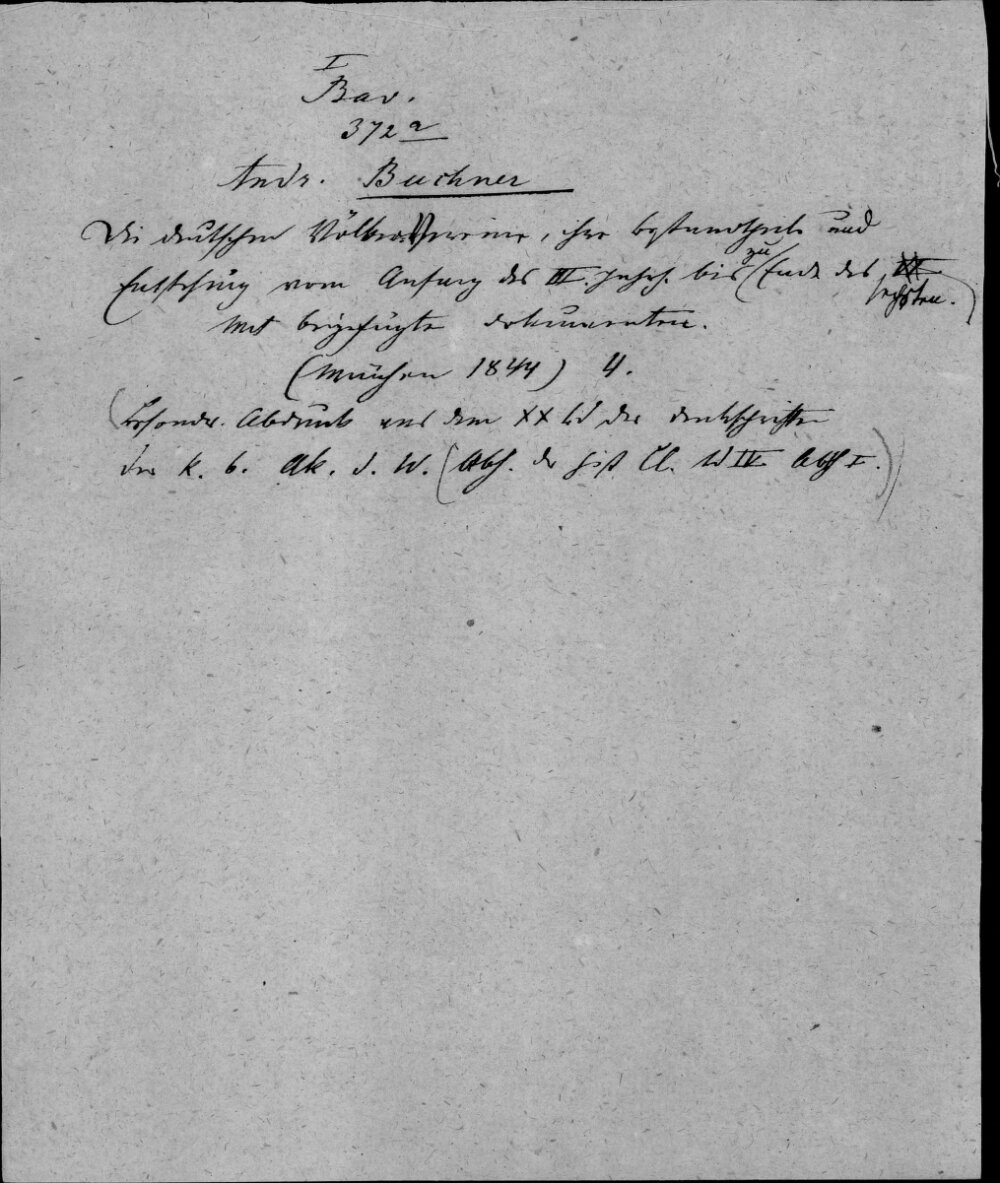 I
Bav.
372 a
Andr. Buchner
Die deutschen Völker Vereine, ihre Bestandtheile und
Entstehung vom Anfang des III. Jahrh. bis zu Ende des sechsten.
Mit beigefügten Dokumenten.
(München 1844) 4.
(Besondr. Abdruck aus dem XX Bd der Denkschriften
der k. b. Ak. d. W. (Abh. der hist Cl. Bd IV Abth I.))